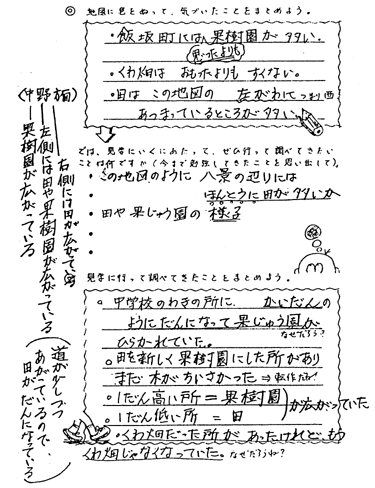 ◎ 地図に色をぬって、気づいたことをまとめよう。
・飯坂町には、果樹園が多い。
思ったよりも
・くわ畑は おもったよりも すくない。
・田は この地図の 左がわに つまり西
あつまっているところが多い。
では、見学にいくにあたって、ぜひ行って調べてきたい
ことは何ですか(今まで勉強してきたことを思い出して)。
・この地図のように 八景の辺りには
ほんとうに田が多いか
・田や果じゅう園の様子
見学に行って調べてきたことをまとめよう。
。中学校のわきの所に、 かいだんの
ようにだんになって果じゅう園が
ひらかれていた。 なぜだろう?
。田を新しく果樹園にした所があり
まだ木がちいさかった ⇒転作だね!
。1だん高い所=果樹園
。1だん低い所=田
が広がっていた
・くわ畑だった所があったけれど、もう
くわ畑じゃなくなっていた。 なぜだろうね?
(中野
果樹園が広がっている
左側には田や果樹園が広がっている
右側には田が広がっている
(道が少しづつ
あがっているので、
田がだんになっている)